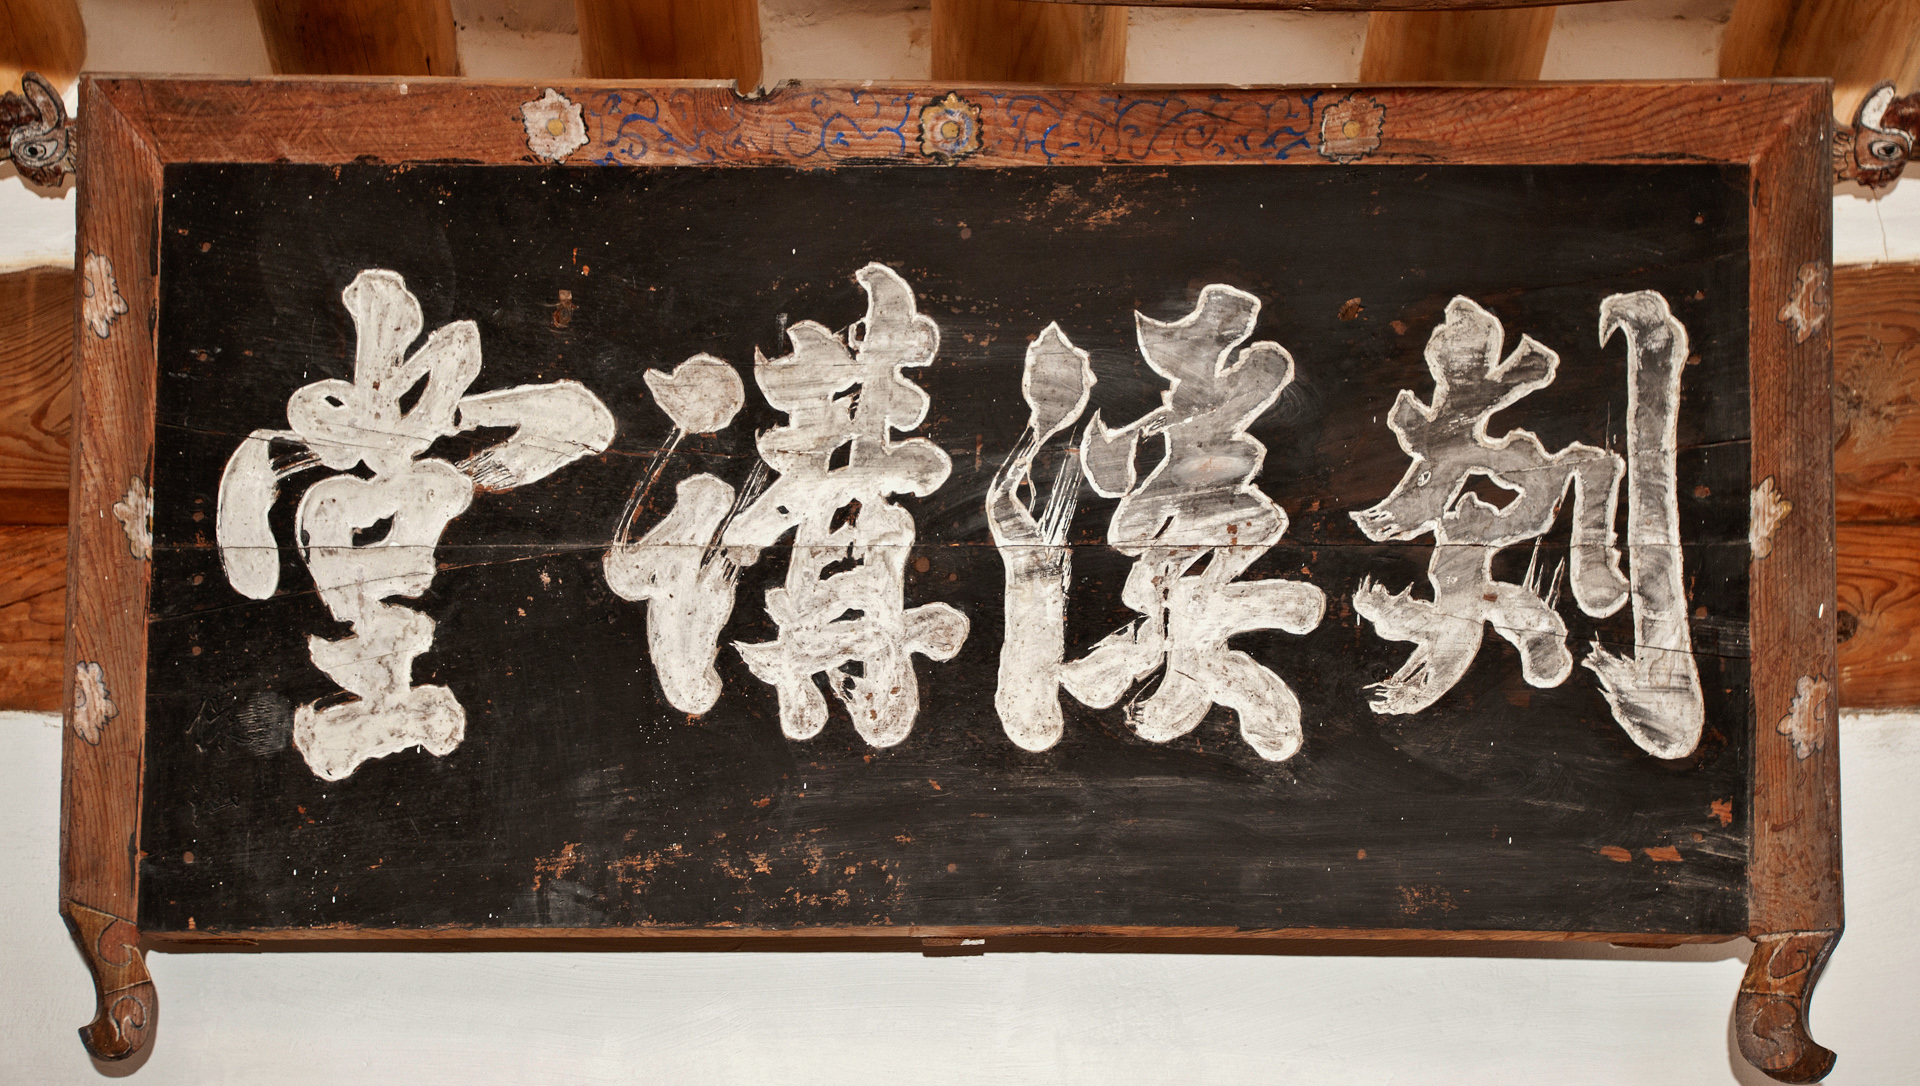 剡溪講堂